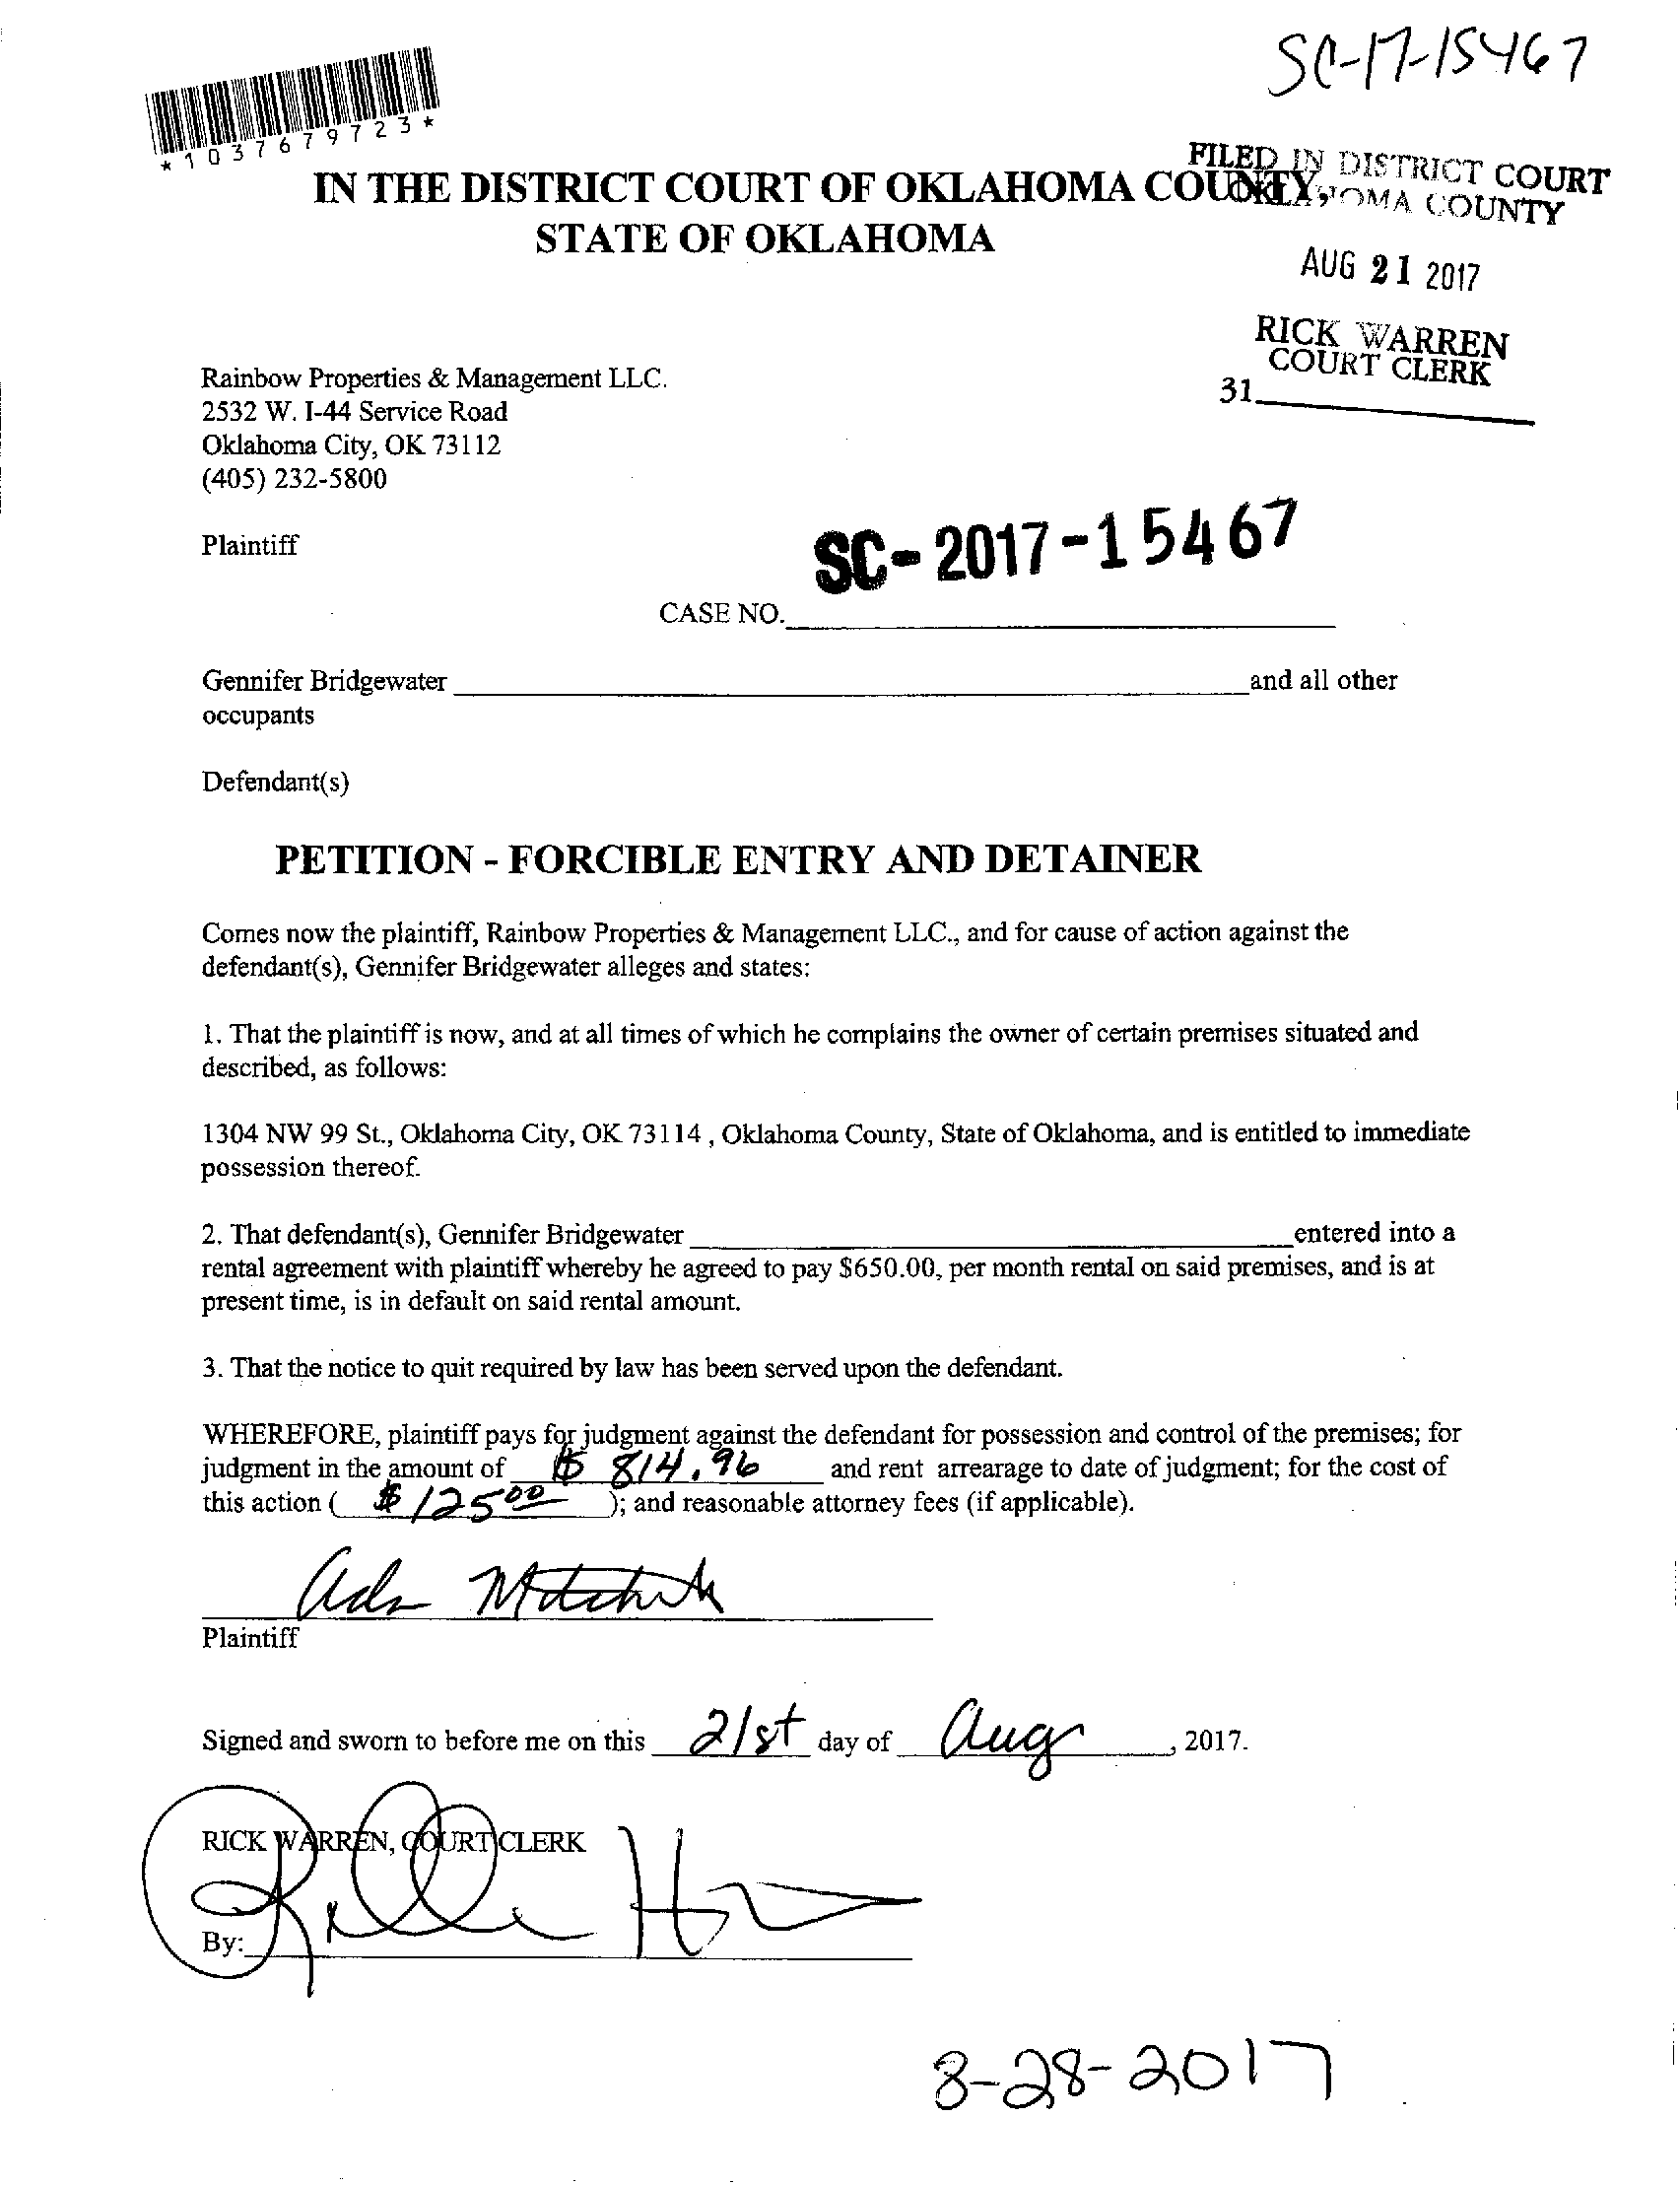 SC-17-15467
*1037679723*
FILED IN DISTRICT COURT
IN THE DISTRICT COURT OF OKLAHOMA COUNTY,
OKLAHOMA COUNTY
STATE OF OKLAHOMA
AUG 21 2017
RICK WARREN
COURT CLERK
31
Rainbow Properties & Management LLC.
2532 W. I-44 Service Road
Oklahoma City, OK 73112
(405) 232-5800
Plaintiff
SC-2017-15467
CASE NO.
Gennifer Bridgewater and all other
occupants
Defendant(s)
PETITION - FORCIBLE ENTRY AND DETAINER
Comes now the plaintiff, Rainbow Properties & Management LLC., and for cause of action against the
defendant(s), Gennifer Bridgewater alleges and states:
1. That the plaintiff is now, and at all times of which he complains the owner of certain premises situated and
described, as follows:
1304 NW 99 St., Oklahoma City, OK 73114 , Oklahoma County, State of Oklahoma, and is entitled to immediate
possession thereof.
2. That defendant(s), Gennifer Bridgewater entered into a
rental agreement with plaintiff whereby he agreed to pay $650.00, per month rental on said premises, and is at
present time, is in default on said rental amount.
3. That the notice to quit required by law has been served upon the defendant.
WHEREFORE, plaintiff pays for judgment against the defendant for possession and control of the premises; for
judgment in the amount of $ 814.96 and rent arrearage to date of judgment; for the cost of
this action ( $ 125 00 ); and reasonable attorney fees (if applicable).
Plaintiff
Signed and sworn to before me on this 21st day of Aug , 2017.
RICK WARREN, COURT CLERK
By:
8-28-2017